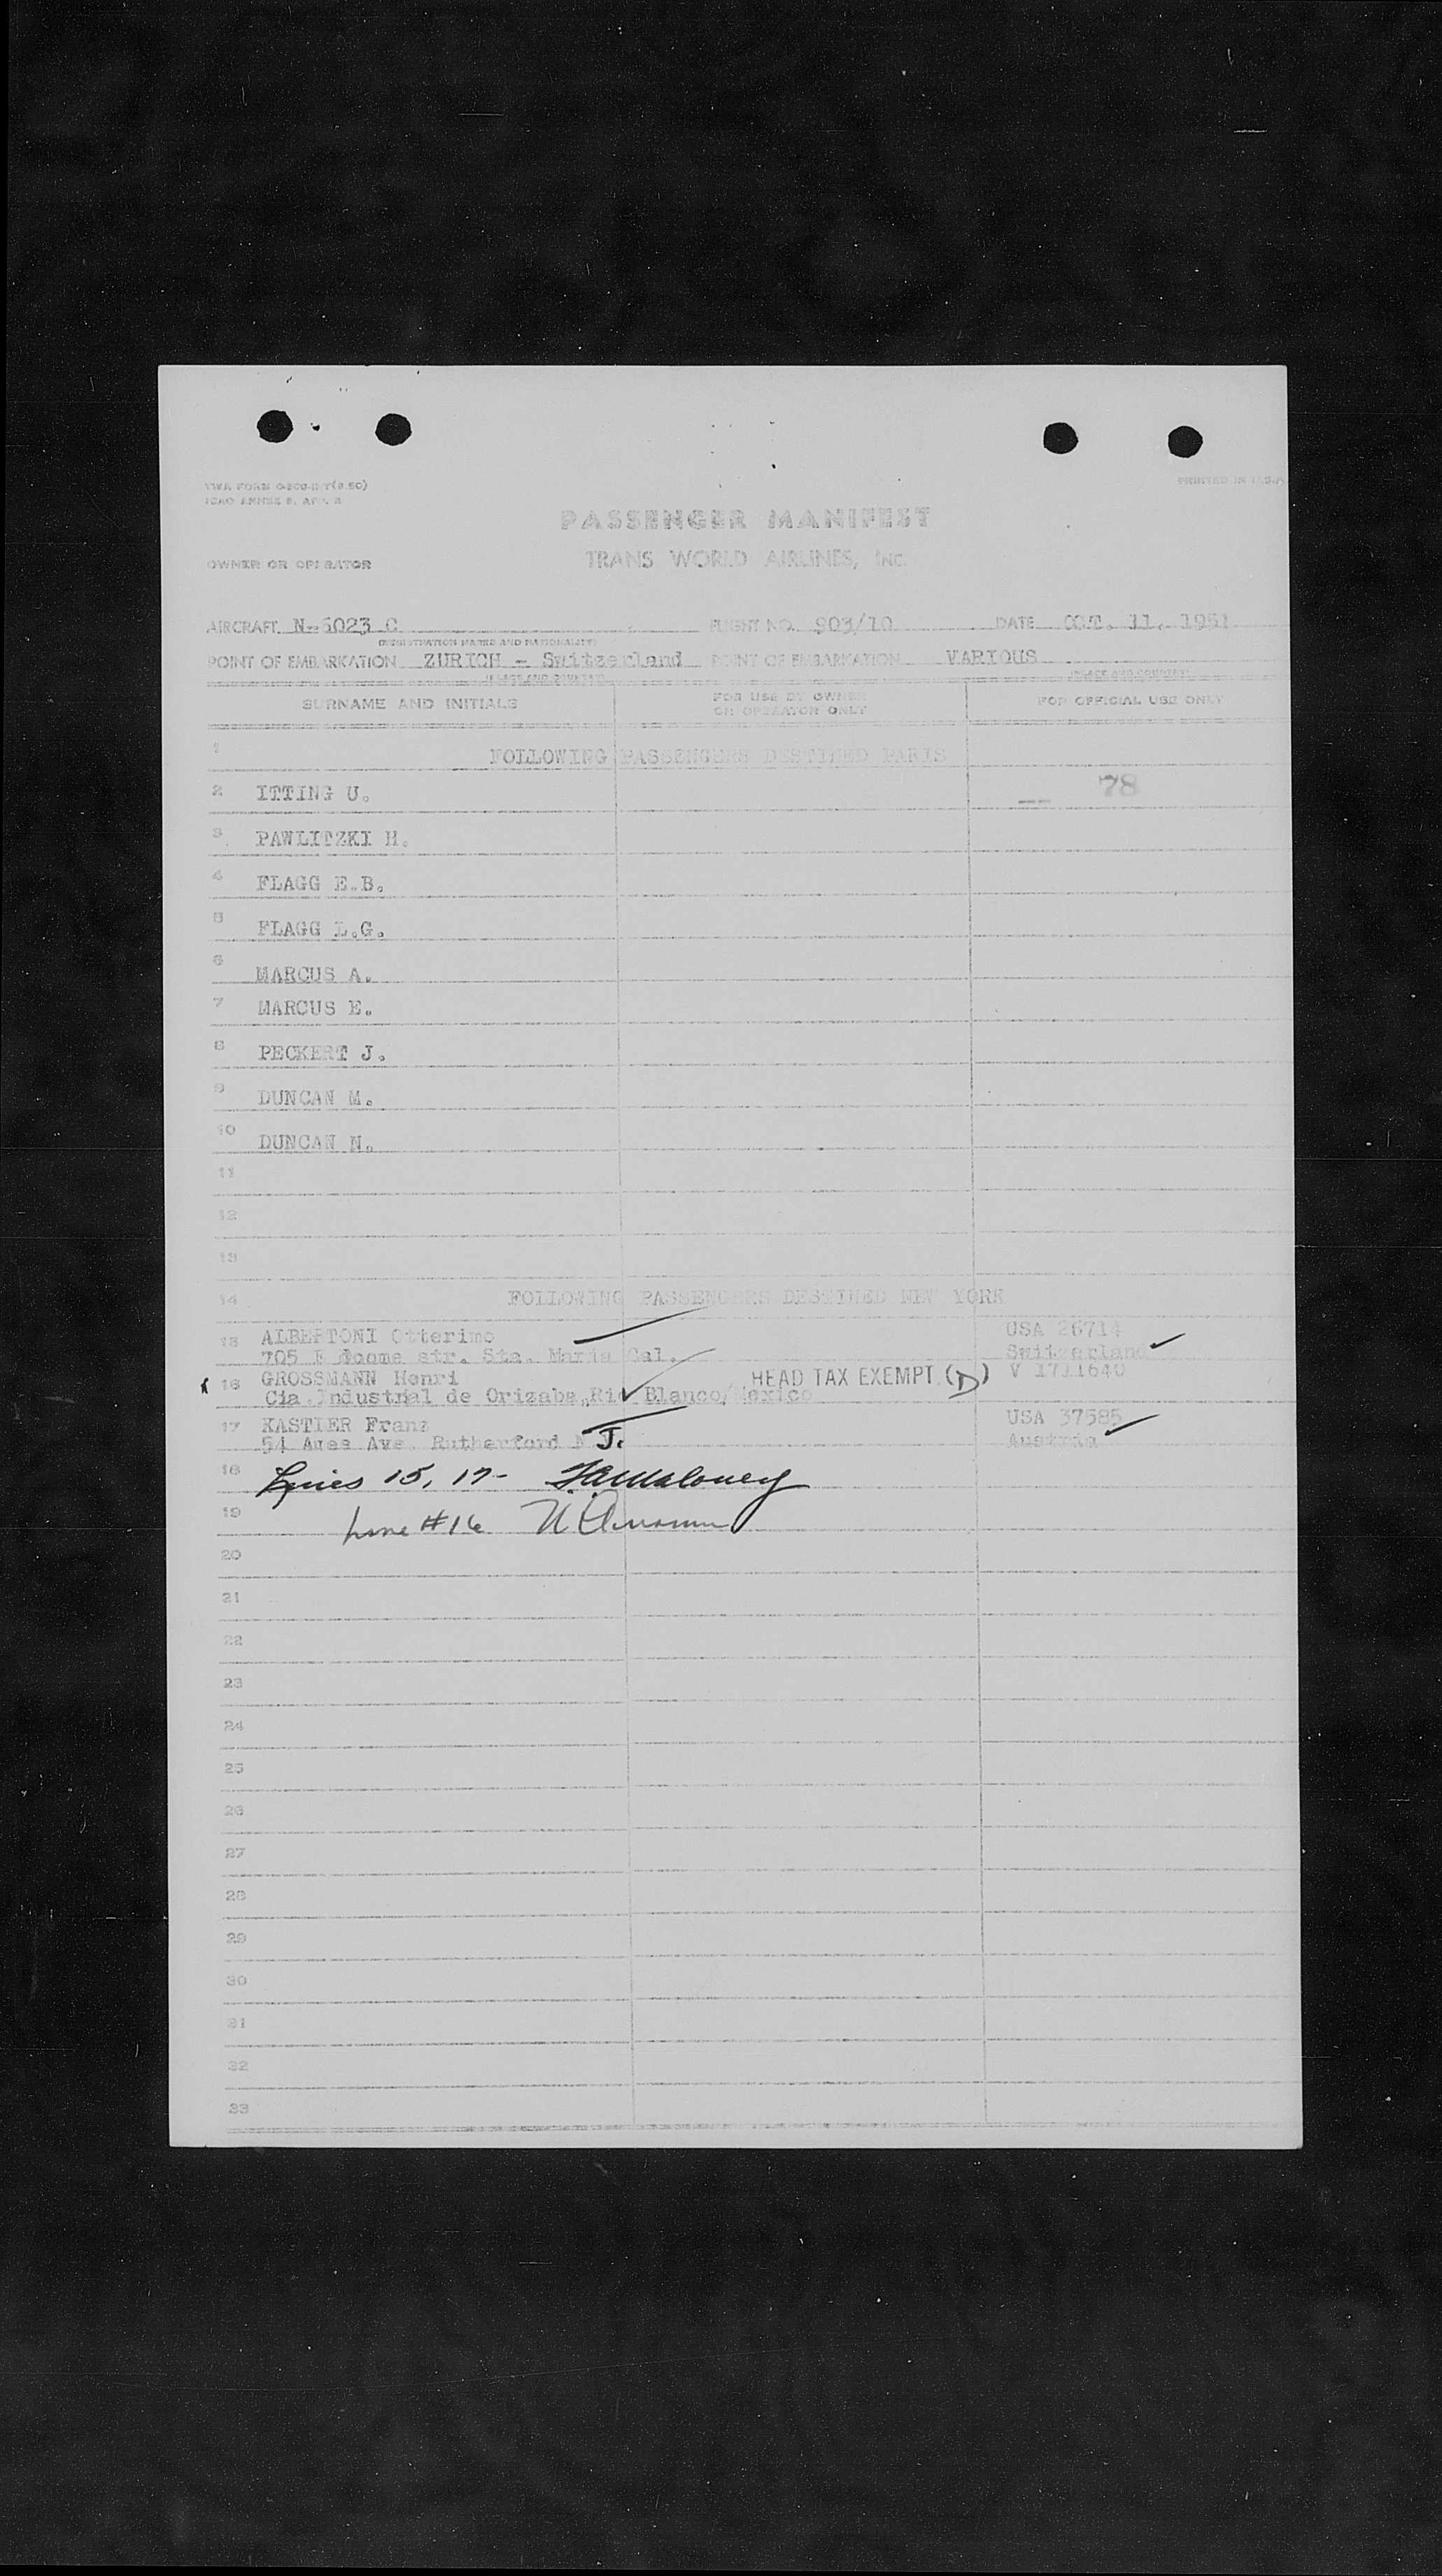 PRINTED IN U.S.A.
PASSENGER MANIFEST
OWNER OR OPERATOR TRANS WORLD AIRLINES, INC.
AIRCRAFT N-6023 C FLIGHT NO. 903/10 DATE OCT. 11, 1951
(REGISTRATION MARKS AND NATIONALITY)
POINT OF EMBARKATION ZURICH - Switzerland POINT OF EMBARKATION VARIOUS
(PLACE AND COUNTRY) (PLACE AND COUNTRY)
SURNAME AND INITIALS FOR USE BY OWNER OR OPERATOR ONLY FOR OFFICIAL USE ONLY
1 FOLLOWING PASSENGERS DESTINED PARIS
2 ITTING U. 78
3 PAWLITZKI H.
4 FLAGG E.B.
5 FLAGG L.G.
6 MARCUS A.
7 MARCUS E.
8 PECKERT J.
9 DUNCAN M.
10 DUNCAN N.
11
12
13
14 FOLLOWING PASSENGERS DESTINED NEW YORK
15 ALBERTONI Otterimo USA 26714
705 E str. Sta. Maria Cal. Switzerland
16 GROSSMANN Henri HEAD TAX EXEMPT (D) V 1711640
Cia.Industrial de Orizaba,Rio Blanco/Mexico
17 KASTIER Franz USA 37585
54 Ames Ave. Rutherford N.J. Austria
18 Lines 15, 17-
19 Line #16
20
21
22
23
24
25
26
27
28
29
30
31
32
33